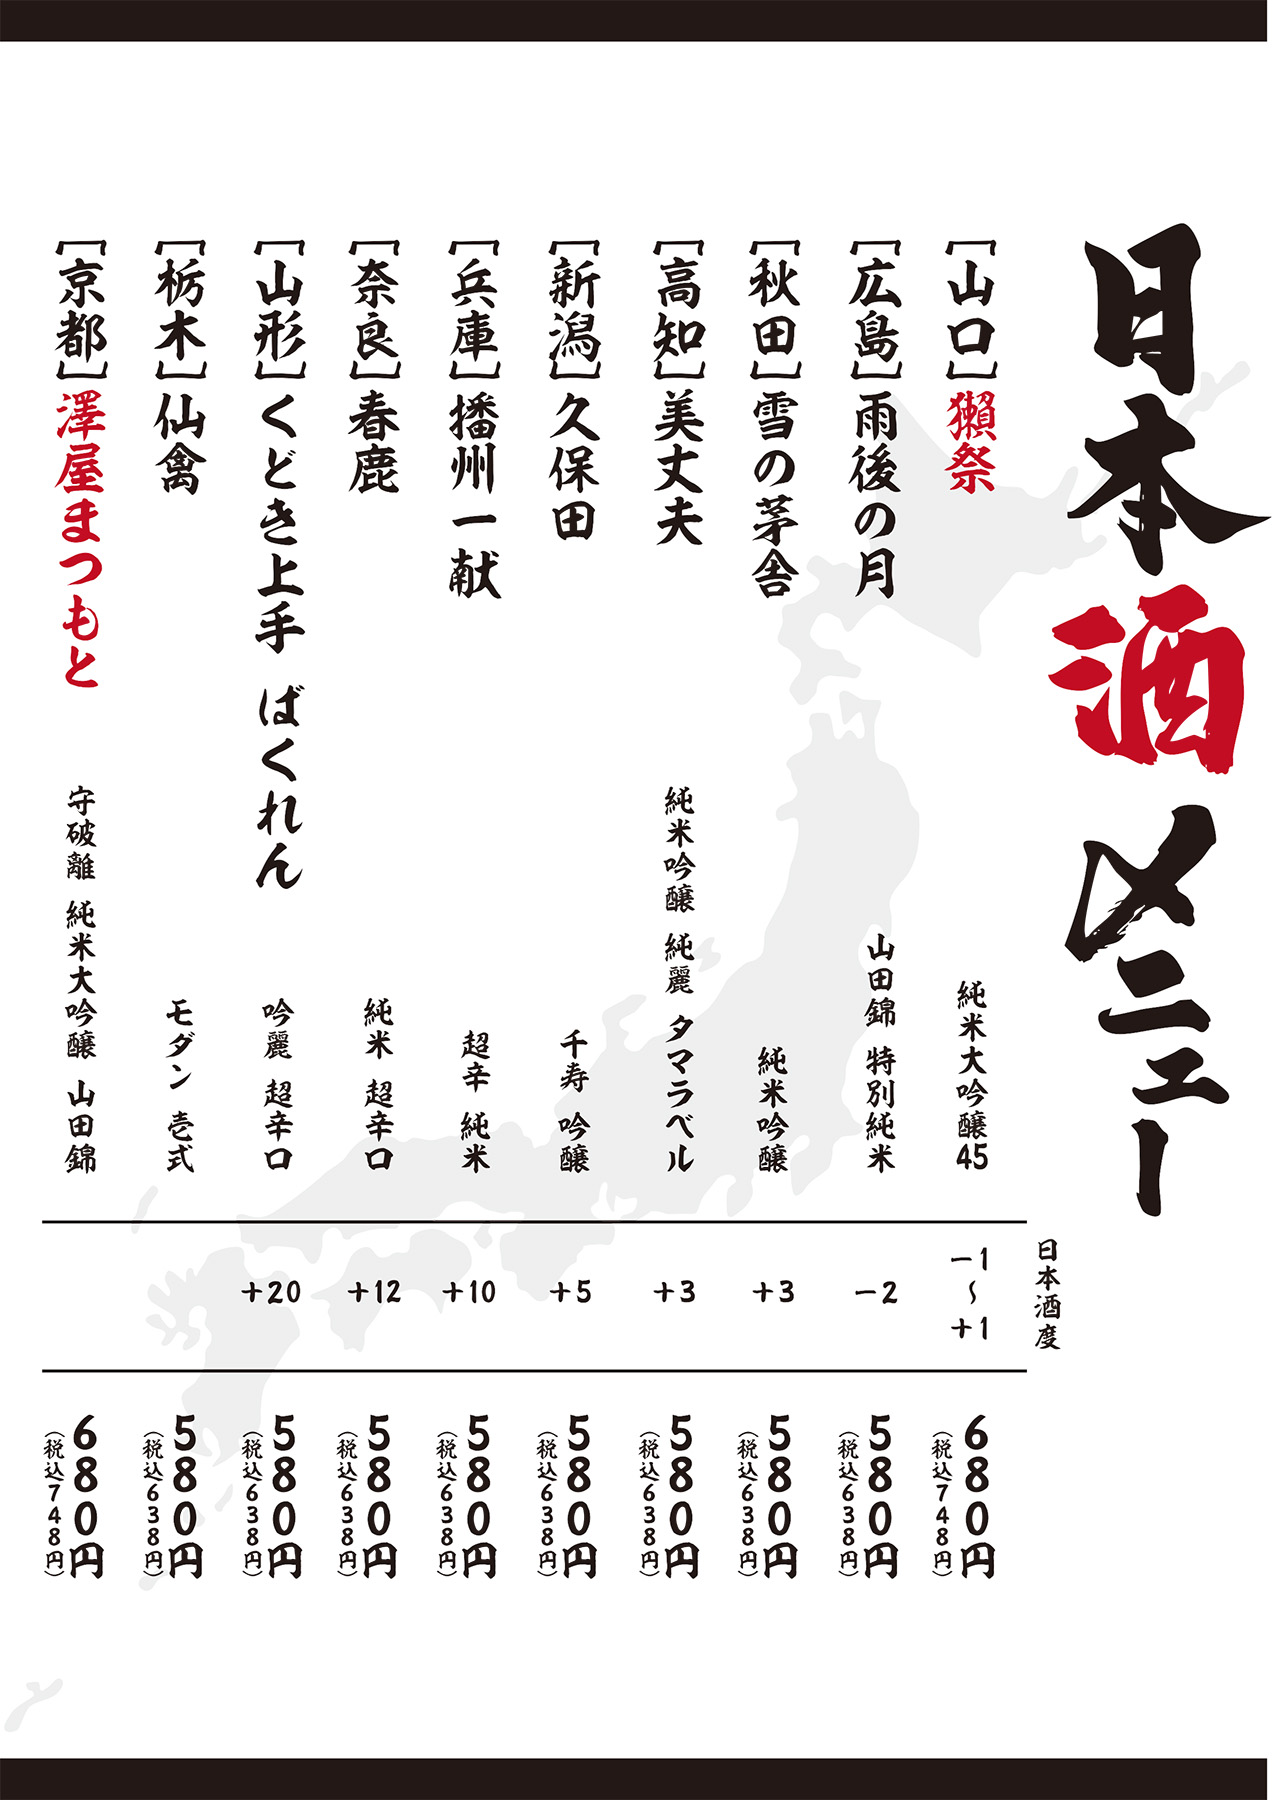 日本酒メニュー
日本酒度
[山口]獺祭 純米大吟醸45
−1〜+1
680円
(税込748円)
[広島]雨後の月 山田錦 特別純米
−2
580円
(税込638円)
[秋田]雪の茅舎 純米吟醸
+3
580円
(税込638円)
[高知]美丈夫 純米吟醸 純麗 タマラベル
+3
580円
(税込638円)
[新潟]久保田 千寿 吟醸
+5
580円
(税込638円)
[兵庫]播州一献 超辛 純米
+10
580円
(税込638円)
[奈良]春鹿 純米 超辛口
+12
580円
(税込638円)
[山形]くどき上手 ばくれん 吟麗 超辛口
+20
580円
(税込638円)
[栃木]仙禽 モダン 壱式
580円
(税込638円)
[京都]澤屋まつもと 守破離 純米大吟醸 山田錦
680円
(税込748円)